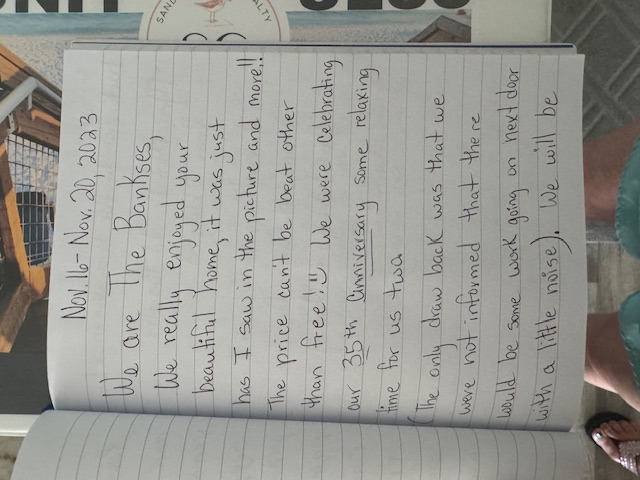 Nov. 16 - Nov. 20, 2023
We are The Bankses,
We really enjoyed your
beautiful home, it was just
has I saw in the picture and more!!
The price can't be beat other
than free! We were Celebrating
our 35th Anniversary some relaxing
time for us two
(The only draw back was that we
were not informed that there
would be some work going on next door
with a little noise). We will be